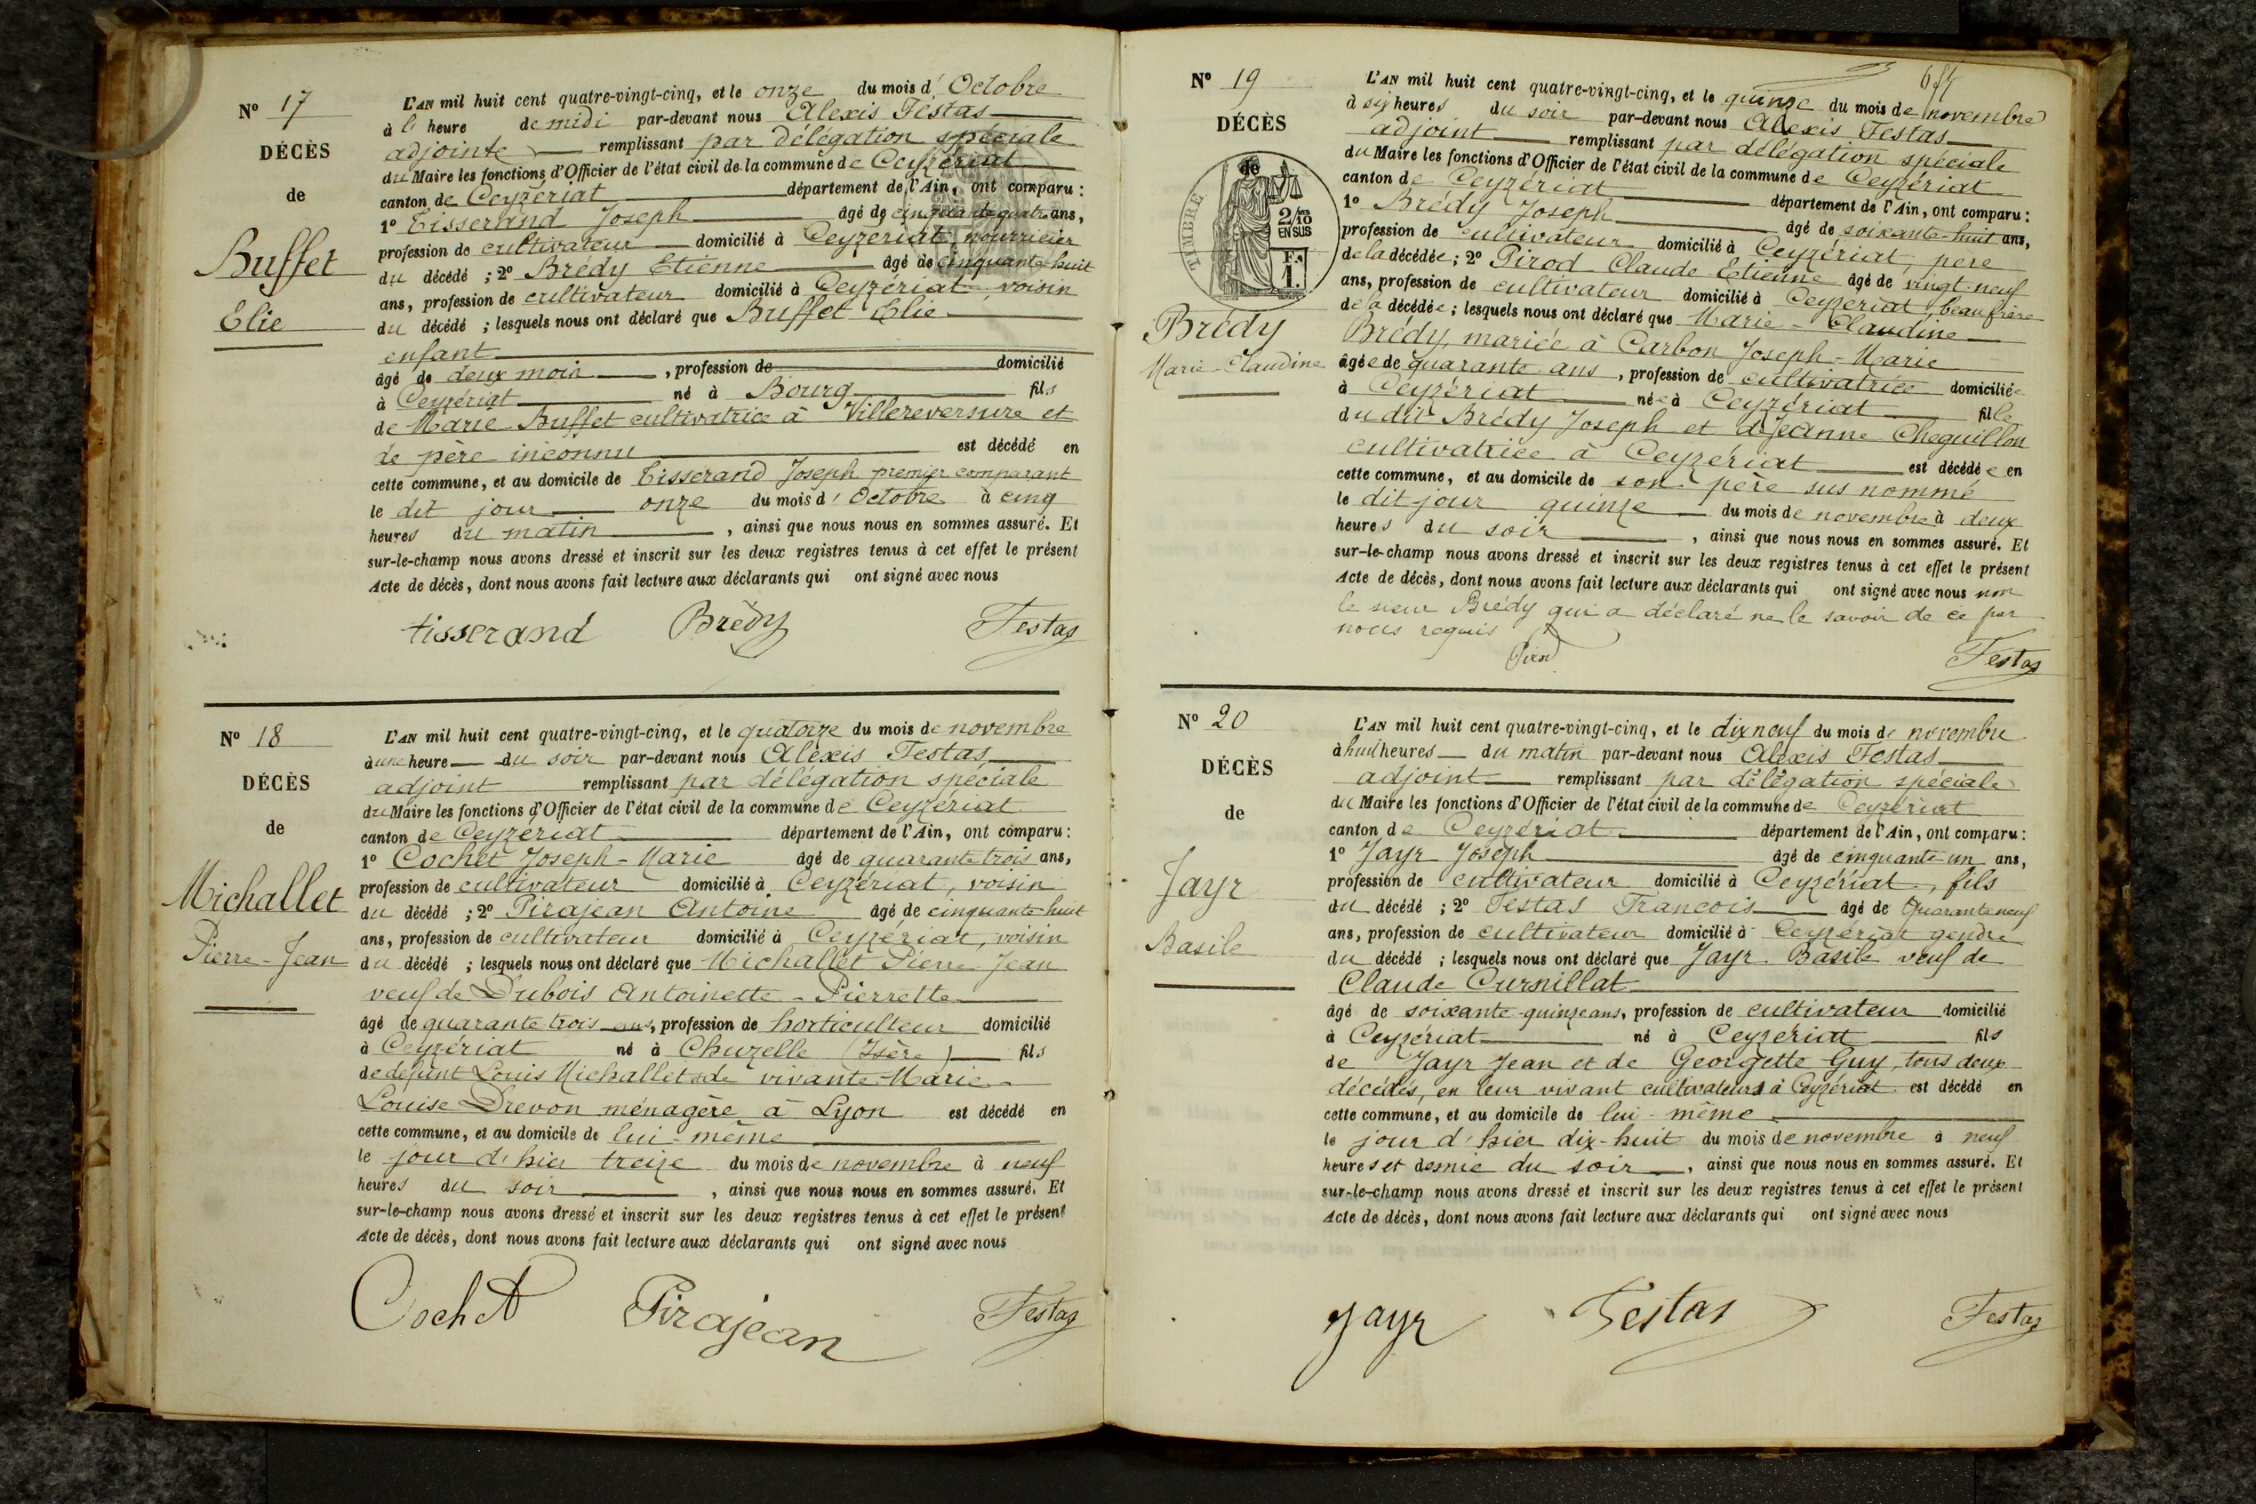 N° 17
DÉCÈS
de
Buffet
Elie
L'AN mil huit cent quatre-vingt-cinq, et le onze du mois d' Octobre
à l' heure de midi par-devant nous Alexis Festas
adjoint remplissant par délégation spéciale
du Maire les fonctions d'Officier de l'état civil de la commune de Ceyzériat
canton de Ceyzériat département de l'Ain, ont comparu :
1° Tisserand Joseph âgé de cinquante quatre ans,
profession de cultivateur domicilié à Ceyzériat, nourricier
du décédé ; 2° Brédy Etienne âgé de cinquante huit
ans, profession de cultivateur domicilié à Ceyzériat, voisin
du décédé ; lesquels nous ont déclaré que Buffet Elie
enfant
âgé de deux mois , profession de domicilié
à Ceyzériat né à Bourg fils
de Marie Buffet cultivatrice à Villereversure et
de père inconnu est décédé en
cette commune, et au domicile de Tisserand Joseph premier comparant
le dit jour onze du mois d' Octobre à cinq
heures du matin , ainsi que nous nous en sommes assuré. Et
sur-le-champ nous avons dressé et inscrit sur les deux registres tenus à cet effet le présent
Acte de décès, dont nous avons fait lecture aux déclarants qui ont signé avec nous
tisserand Brédy Festas
N° 18
DÉCÈS
de
Michallet
Pierre-Jean
L'AN mil huit cent quatre-vingt-cinq, et le quatorze du mois de novembre
à une heure du soir par-devant nous Alexis Festas
adjoint remplissant par délégation spéciale
du Maire les fonctions d'Officier de l'état civil de la commune de Ceyzériat
canton de Ceyzériat département de l'Ain, ont comparu :
1° Cochet Joseph-Marie âgé de quarante trois ans,
profession de cultivateur domicilié à Ceyzériat, voisin
du décédé ; 2° Pirajean Antoine âgé de cinquante huit
ans, profession de cultivateur domicilié à Ceyzériat, voisin
du décédé ; lesquels nous ont déclaré que Michallet Pierre Jean
veuf de Dubois Antoinette-Pierrette
âgé de quarante trois ans, profession de horticulteur domicilié
à Ceyzériat né à Chuzelle (Isère) fils
de défunt Louis Michallet & de vivante Marie-
Louise Drevon ménagère à Lyon est décédé en
cette commune, et au domicile de lui-même
le jour d'hier treize du mois de novembre à neuf
heures du soir , ainsi que nous nous en sommes assuré. Et
sur-le-champ nous avons dressé et inscrit sur les deux registres tenus à cet effet le présent
Acte de décès, dont nous avons fait lecture aux déclarants qui ont signé avec nous
Cochet Pirajean Festas
684
N° 19
DÉCÈS
de
TIMBRE
2/10
EN SUS
Brédy
Marie-Claudine
L'AN mil huit cent quatre-vingt-cinq, et le quinze du mois de novembre
à six heures du soir par-devant nous Alexis Festas
adjoint remplissant par délégation spéciale
du Maire les fonctions d'Officier de l'état civil de la commune de Ceyzériat
canton de Ceyzériat département de l'Ain, ont comparu :
1° Brédy Joseph âgé de soixante-huit ans,
profession de cultivateur domicilié à Ceyzériat, père
de la décédée ; 2° Pirod Claude Etienne âgé de vingt-neuf
ans, profession de cultivateur domicilié à Ceyzériat beau frère
de la décédée ; lesquels nous ont déclaré que Marie-Claudine
Brédy, mariée à Carbon Joseph-Marie
âgée de quarante ans , profession de cultivatrice domiciliée
à Ceyzériat née à Ceyzériat fille
du dit Brédy Joseph et de Jeanne Cheguillon
cultivatrice à Ceyzériat est décédée en
cette commune, et au domicile de son père sus nommé
le dit jour quinze du mois de novembre à deux
heures du soir , ainsi que nous nous en sommes assuré. Et
sur-le-champ nous avons dressé et inscrit sur les deux registres tenus à cet effet le présent
Acte de décès, dont nous avons fait lecture aux déclarants qui ont signé avec nous non
le sieur Brédy qui a déclaré ne le savoir de ce par
nous requis
Pirod Festas
N° 20
DÉCÈS
de
Jayr
Basile
L'AN mil huit cent quatre-vingt-cinq, et le dix neuf du mois de novembre
à huit heures du matin par-devant nous Alexis Festas
adjoint remplissant par délégation spéciale
du Maire les fonctions d'Officier de l'état civil de la commune de Ceyzériat
canton de Ceyzériat département de l'Ain, ont comparu :
1° Jayr Joseph âgé de cinquante-un ans,
profession de cultivateur domicilié à Ceyzériat, fils
du décédé ; 2° Festas François âgé de quarante neuf
ans, profession de cultivateur domicilié à Ceyzériat gendre
du décédé ; lesquels nous ont déclaré que Jayr Basile veuf de
Claude Curnillat
âgé de soixante-quinze ans, profession de cultivateur domicilié
à Ceyzériat né à Ceyzériat fils
de Jayr Jean et de Georgette Guy, tous deux
décédés, en leur vivant cultivateurs à Ceyzériat est décédé en
cette commune, et au domicile de lui-même
le jour d'hier dix-huit du mois de novembre à neuf
heures et demie du soir , ainsi que nous nous en sommes assuré. Et
sur-le-champ nous avons dressé et inscrit sur les deux registres tenus à cet effet le présent
Acte de décès, dont nous avons fait lecture aux déclarants qui ont signé avec nous
Jayr Festas Festas